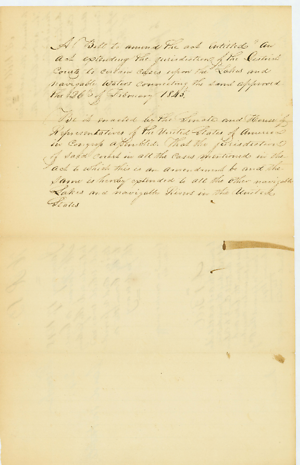 A Bill to amend the act entitled "An
act extending the jurisdiction of the District
Courts to certain cases upon the Lakes and
navigable waters connecting the same approved
the 26th of February 1845.
Be it enacted by the Senate and House of
Representatives of the United States of America
in Congress assembled, That the jurisdiction
of said courts in all the cases mentioned in the
act to which this is an amendment be and the
same is hereby extended to all the other navigable
Lakes and navigable rivers in the United
States